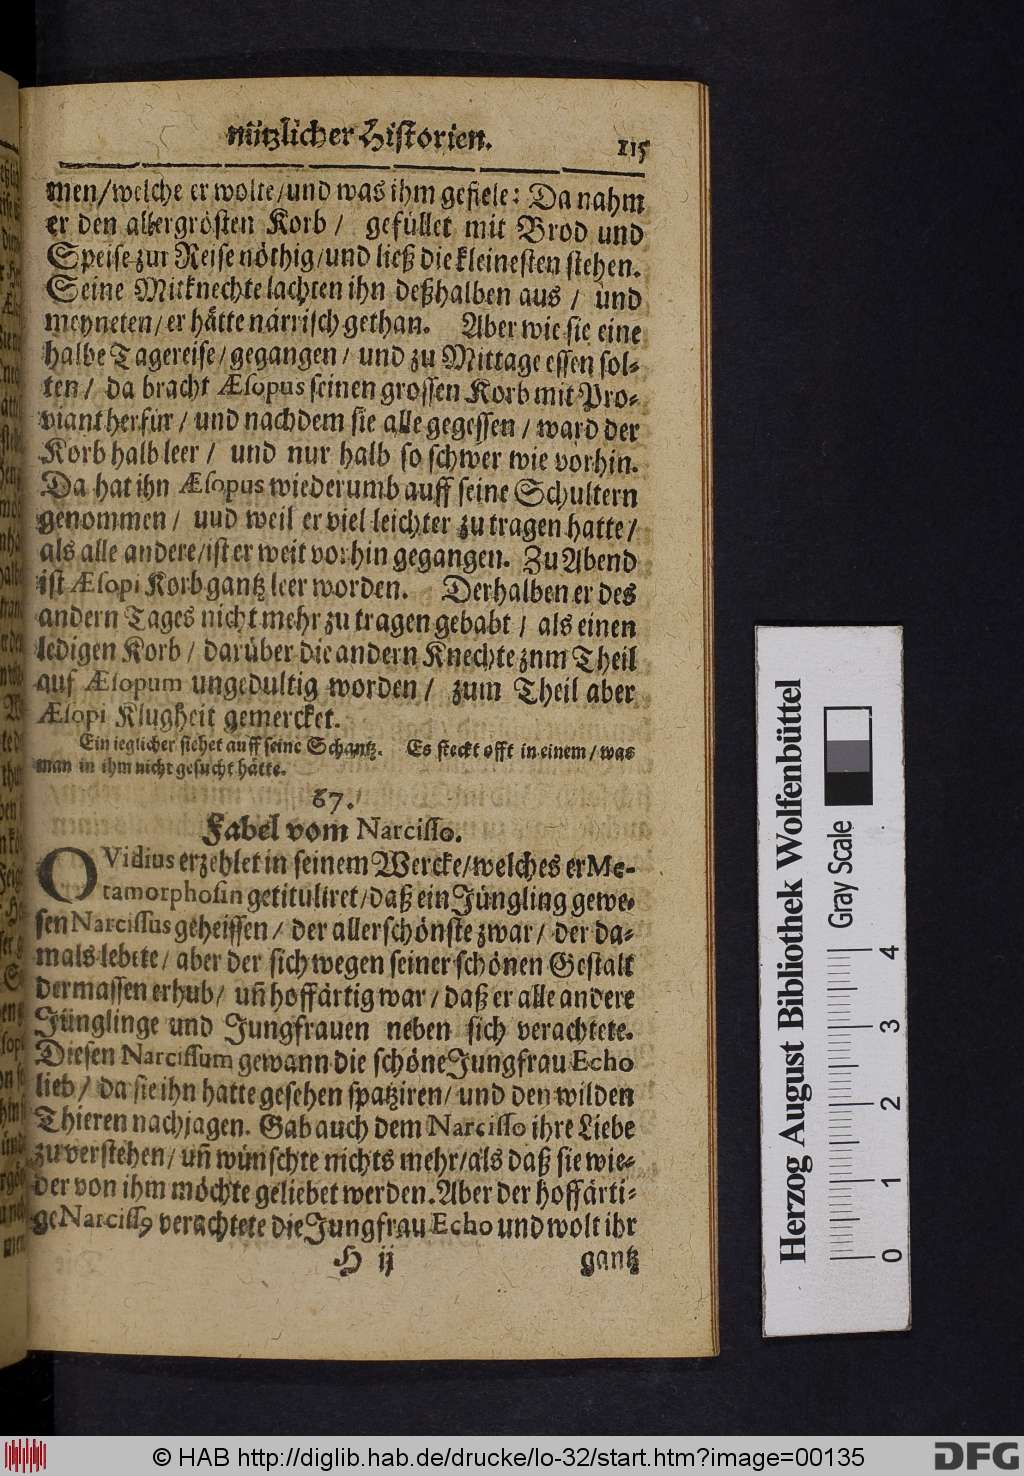 nützlicher Historien. 115
men/welche er wolte/und was ihm gefiele: Da nahm
er den allergrösten Korb / gefüllet mit Brod und
Speise zur Reise nöthig/und ließ die kleinesten stehen.
Seine Mitknechte lachten ihn deßhalben aus / und
meyneten/er hätte närrisch gethan. Aber wie sie eine
halbe Tagereise/gegangen/ und zu Mittage essen sol-
ten/ da bracht Æsopus seinen grossen Korb mit Pro-
viant herfür / und nachdem sie alle gegessen / ward der
Korb halb leer / und nur halb so schwer wie vorhin.
Da hat ihn Æsopus wiederumb auff seine Schultern
genommen / uud weil er viel leichter zu tragen hatte/
als alle andere/ist er weit vorhin gegangen. Zu Abend
ist Æsopi Korb gantz leer worden. Derhalben er des
andern Tages nicht mehr zu tragen gebabt / als einen
ledigen Korb / darüber die andern Knechte znm Theil
auf Æsopum ungedultig worden / zum Theil aber
Æsopi Klugheit gemercket.
Ein ieglicher siehet auff seine Schantz. Es steckt offt in einem/was
man in ihm nicht gesucht hätte.
67.
Fabel vom Narcisso.
OVidius erzehlet in seinem Wercke/welches er Me-
tamorphosin getituliret/daß ein Jüngling gewe-
sen Narcissus geheissen / der allerschönste zwar / der da-
mals lebete / aber der sich wegen seiner schönen Gestalt
dermassen erhub/ uñ hoffärtig war / daß er alle andere
Jünglinge und Jungfrauen neben sich verachtete.
Diesen Narcissum gewann die schöne Jungfrau Echo
lieb / da sie ihn hatte gesehen spatziren/ und den wilden
Thieren nachjagen. Gab auch dem Narcisso ihre Liebe
zu verstehen/ uñ wünschte nichts mehr/als daß sie wie-
der von ihm möchte geliebet werden. Aber der hoffärti-
ge Narcissꝰ verachtete die Jungfrau Echo und wolt ihr
H ij gantz
Herzog August Bibliothek Wolfenbüttel
Gray Scale
0 1 2 3 4
© HAB http://diglib.hab.de/drucke/lo-32/start.htm?image=00135 DFG